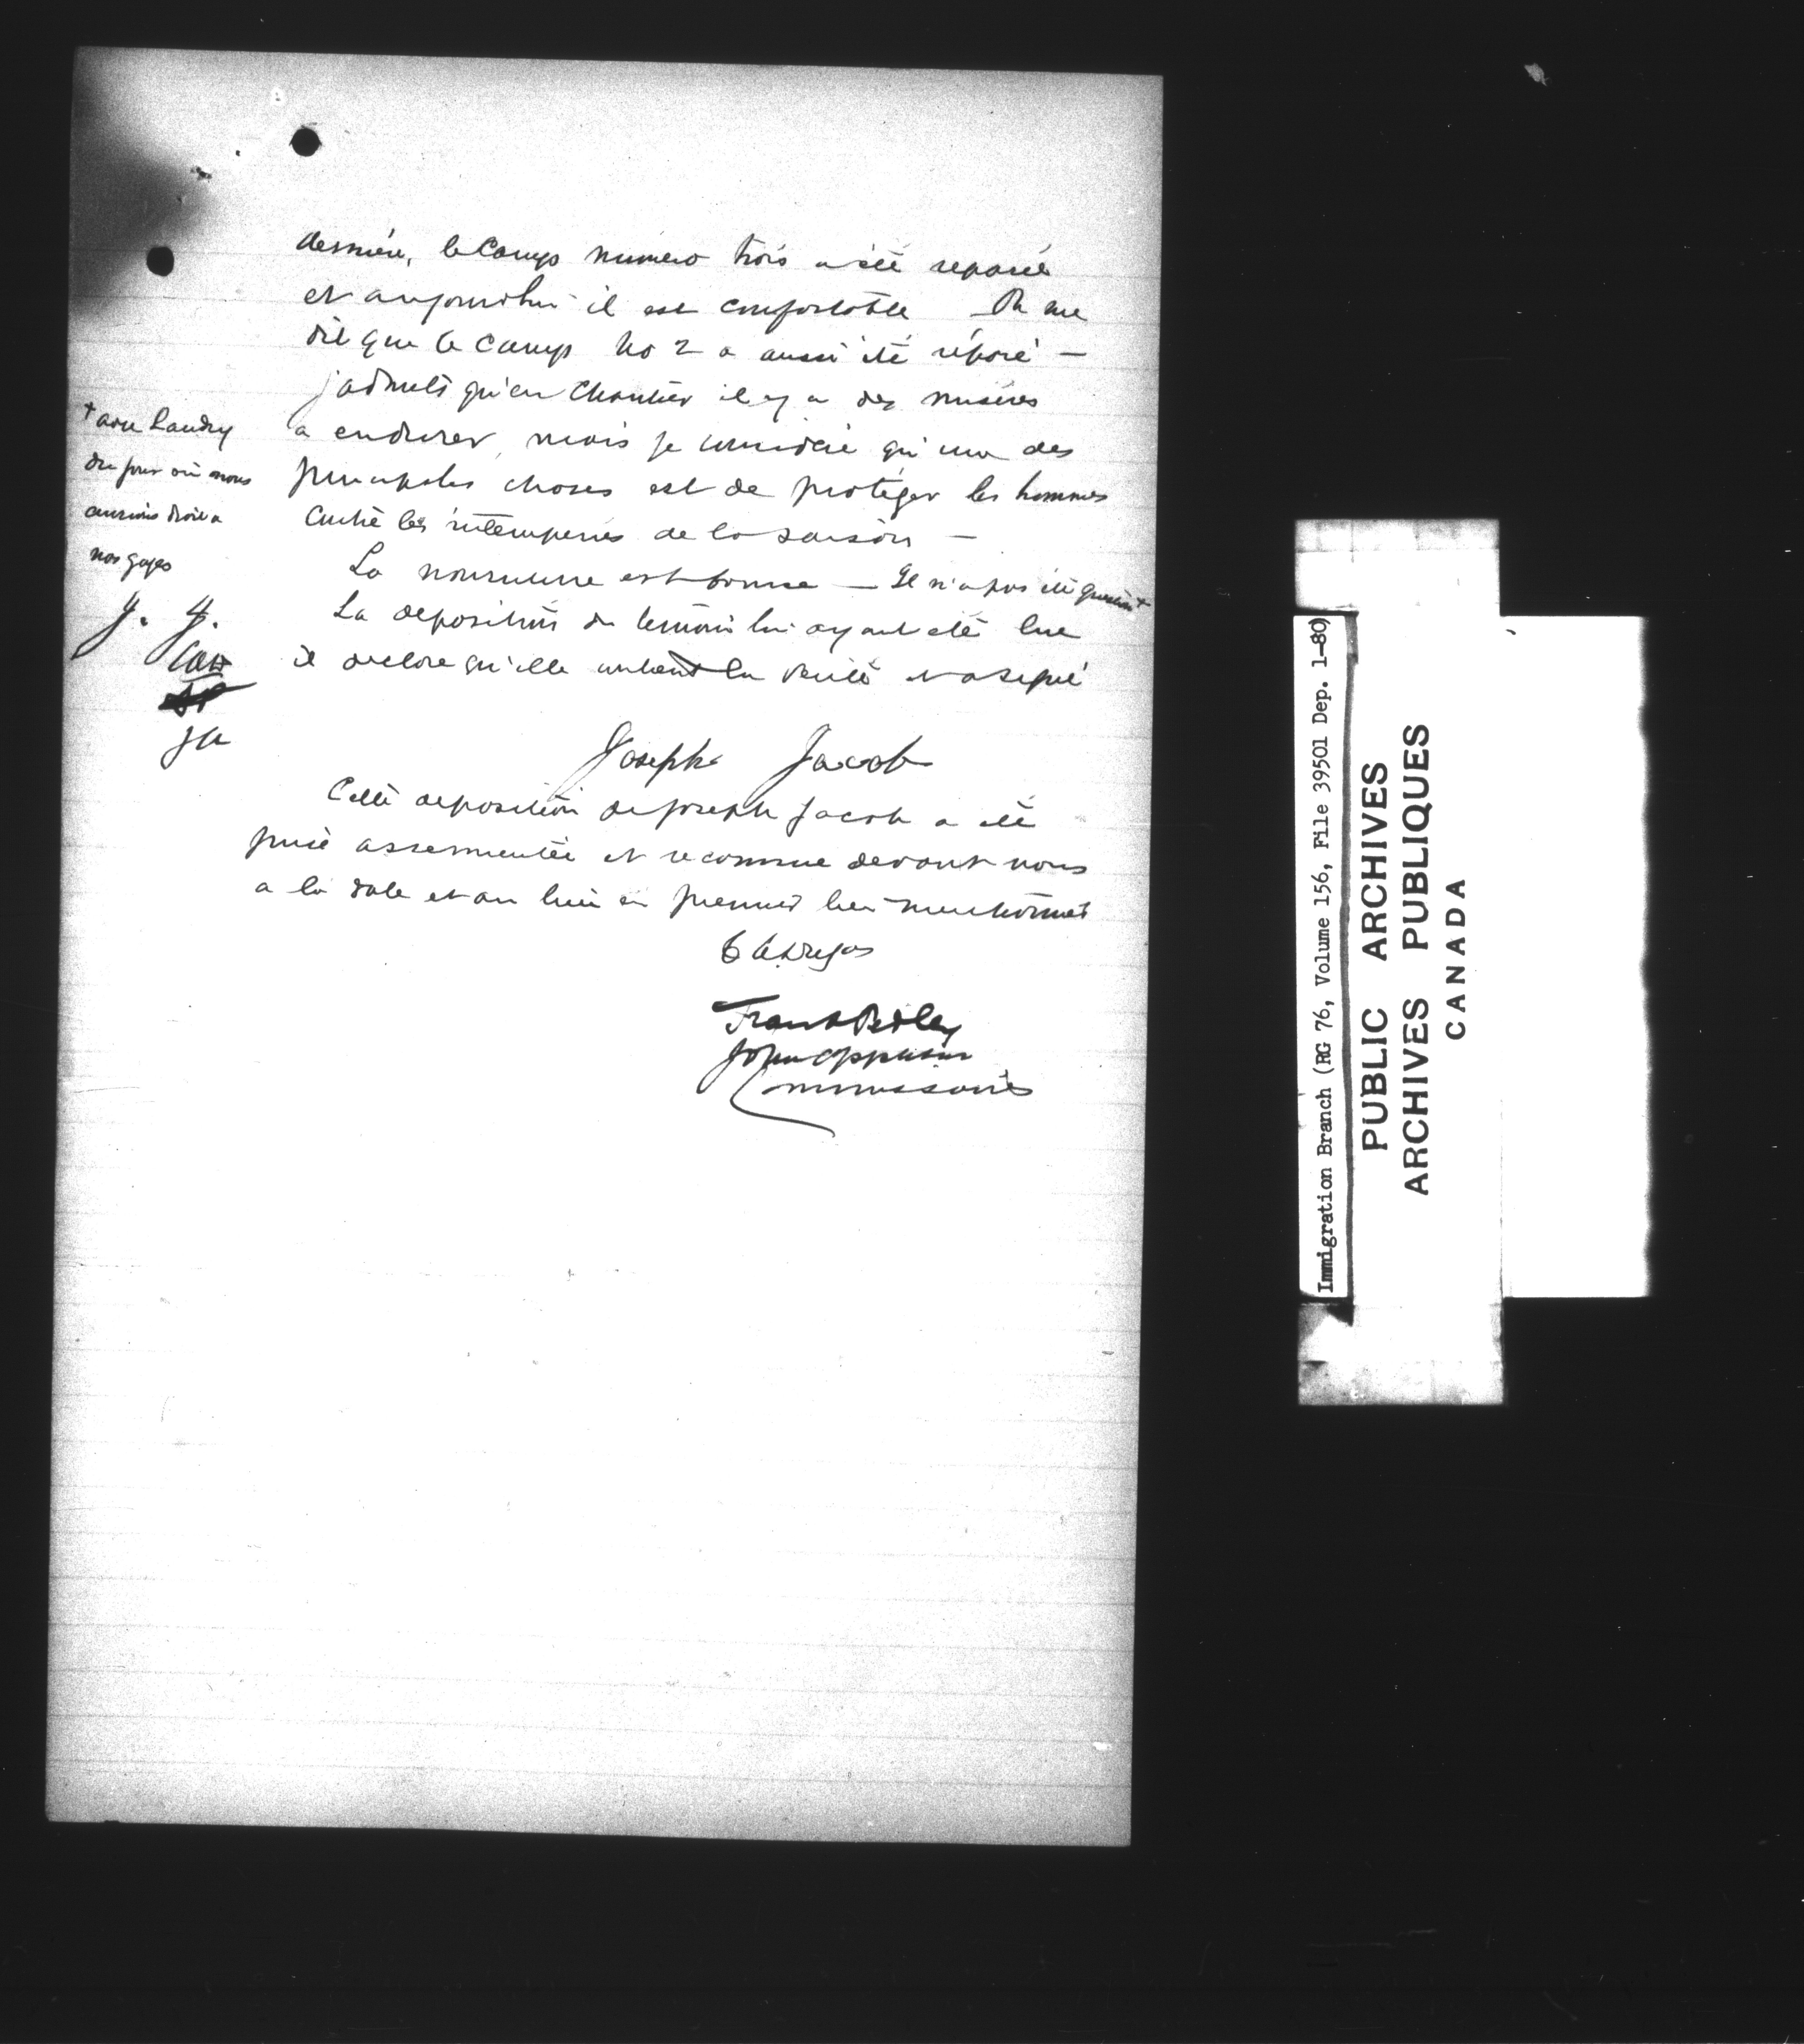 dernière, le Camp numero trois a été reparé
et aujourdhui il est confortable On me
dit que le Camp No 2 a aussi été réparé —
j'admets qu'en Chantier il y a des misères
a endurer, mais je considère qu'une des
principales choses est de protéger les hommes
contre les intemperies de la saison —
La nourriture est bonne — Il n'a pas été question +
La deposition du temoin lui ayant été lue
il declare qu'elle contient la verité et a signé
+ avec Landry
du jour où nous
aurions droit a
nos gages
J. J.
Joseph Jacob
Cette deposition de Joseph Jacob a été
prise assermentée et reconnue devant nous
a la date et au lieu en premier lieu mentionnés
Frank Pedley
Commissaires
Immigration Branch (RG 76, Volume 156, File 39501 Dep. 1-80)
PUBLIC ARCHIVES
ARCHIVES PUBLIQUES
CANADA